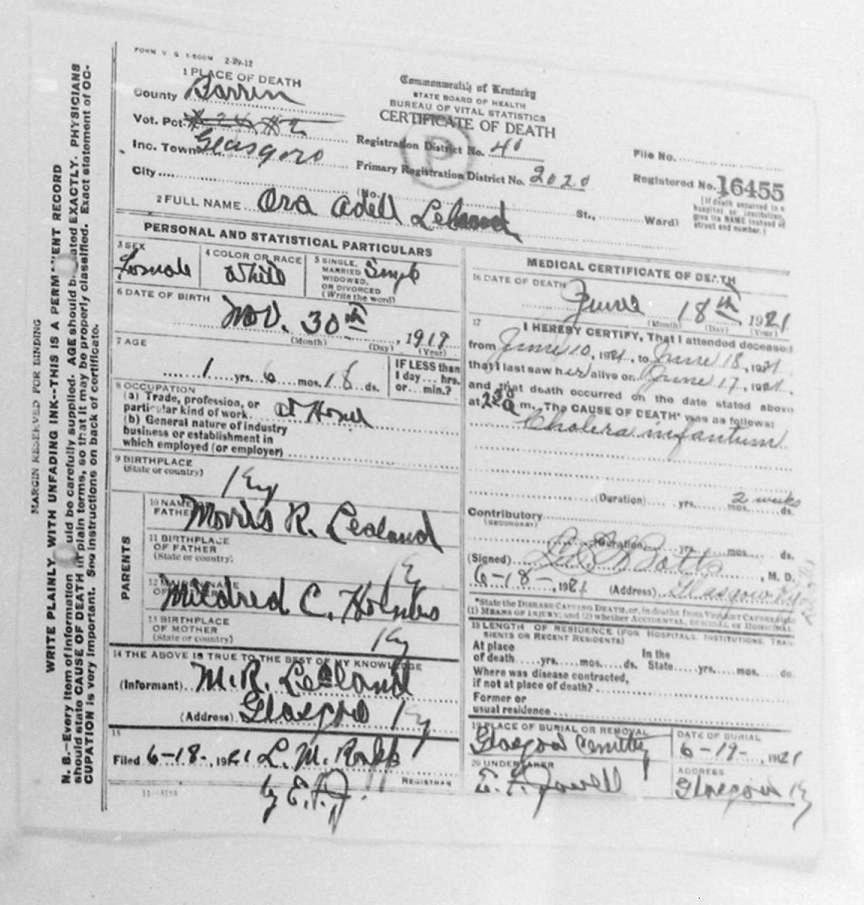 FORM V. S. 1-500M 2-29-12
1 PLACE OF DEATH
County Barren
Vot. Pct.
Inc. Town Glasgow
City
Commonwealth of Kentucky
STATE BOARD OF HEALTH
BUREAU OF VITAL STATISTICS
CERTIFICATE OF DEATH
P
Registration District No. 40
Primary Registration District No. 2020
(No. St., Ward)
File No.
Registered No. 16455
[If death occurred in a
hospital or institution,
give its NAME instead of
street and number.]
2 FULL NAME Ora Adell Leland
PERSONAL AND STATISTICAL PARTICULARS
3 SEX
Female
4 COLOR OR RACE
White
5 SINGLE,
MARRIED
WIDOWED,
OR DIVORCED
(Write the word)
Single
6 DATE OF BIRTH
Nov. 30th, 1919
(Month) (Day) (Year)
7 AGE
1 yrs. 6 mos. 18 ds.
IF LESS than
1 day... hrs.
or... min.?
8 OCCUPATION
(a) Trade, profession, or
particular kind of work. at Home
(b) General nature of industry
business or establishment in
which employed (or employer)
9 BIRTHPLACE
(State or country)
Ky
PARENTS
10 NAME
FATHER
Morris R. Lealand
11 BIRTHPLACE
OF FATHER
(State or country)
Ky
12
Mildred C.
13 BIRTHPLACE
OF MOTHER
(State or country)
Ky
14 THE ABOVE IS TRUE TO THE BEST OF MY KNOWLEDGE
(Informant) M. R. Lealand
(Address) Glasgow Ky
15
Filed 6-18-, 1921 L. M.
REGISTRAR
by E. F. J.
MEDICAL CERTIFICATE OF DEATH
16 DATE OF DEATH
June 18th 1921
(Month) (Day) (Year)
17 I HEREBY CERTIFY, That I attended deceased
from June 10, 1921, to June 18, 1921
that I last saw her alive on June 17, 1921,
and that death occurred on the date stated above
at m. The CAUSE OF DEATH* was as follows:
Cholera infantum
(Duration) yrs. mos. ds.
2 weeks
Contributory
(SECONDARY)
(Duration) yrs. mos. ds.
(Signed) Botts, M. D.
6-18-, 1921 (Address) Glasgow Ky
*State the DISEASE CAUSING DEATH, or, in deaths from VIOLENT CAUSES state
(1) MEANS OF INJURY; and (2) whether ACCIDENTAL, SUICIDAL, or HOMICIDAL
18 LENGTH OF RESIDENCE (FOR HOSPITALS, INSTITUTIONS, TRAN-
SIENTS OR RECENT RESIDENTS)
At place
of death yrs. mos. ds.
In the
State yrs. mos. ds.
Where was disease contracted,
if not at place of death?
Former or
usual residence
19 PLACE OF BURIAL OR REMOVAL
Glasgow Cemetery
DATE OF BURIAL
6-19-, 1921
20 UNDERTAKER
E. F. Jewell
ADDRESS
Glasgow Ky
MARGIN RESERVED FOR BINDING
WRITE PLAINLY WITH UNFADING INK--THIS IS A PERM ENT RECORD
N. B.—Every item of information uld be carefully supplied. AGE should b ated EXACTLY. PHYSICIANS
should state CAUSE OF DEATH in plain terms, so that it may be properly classified. Exact statement of OC-
CUPATION is very important. See instructions on back of certificate.